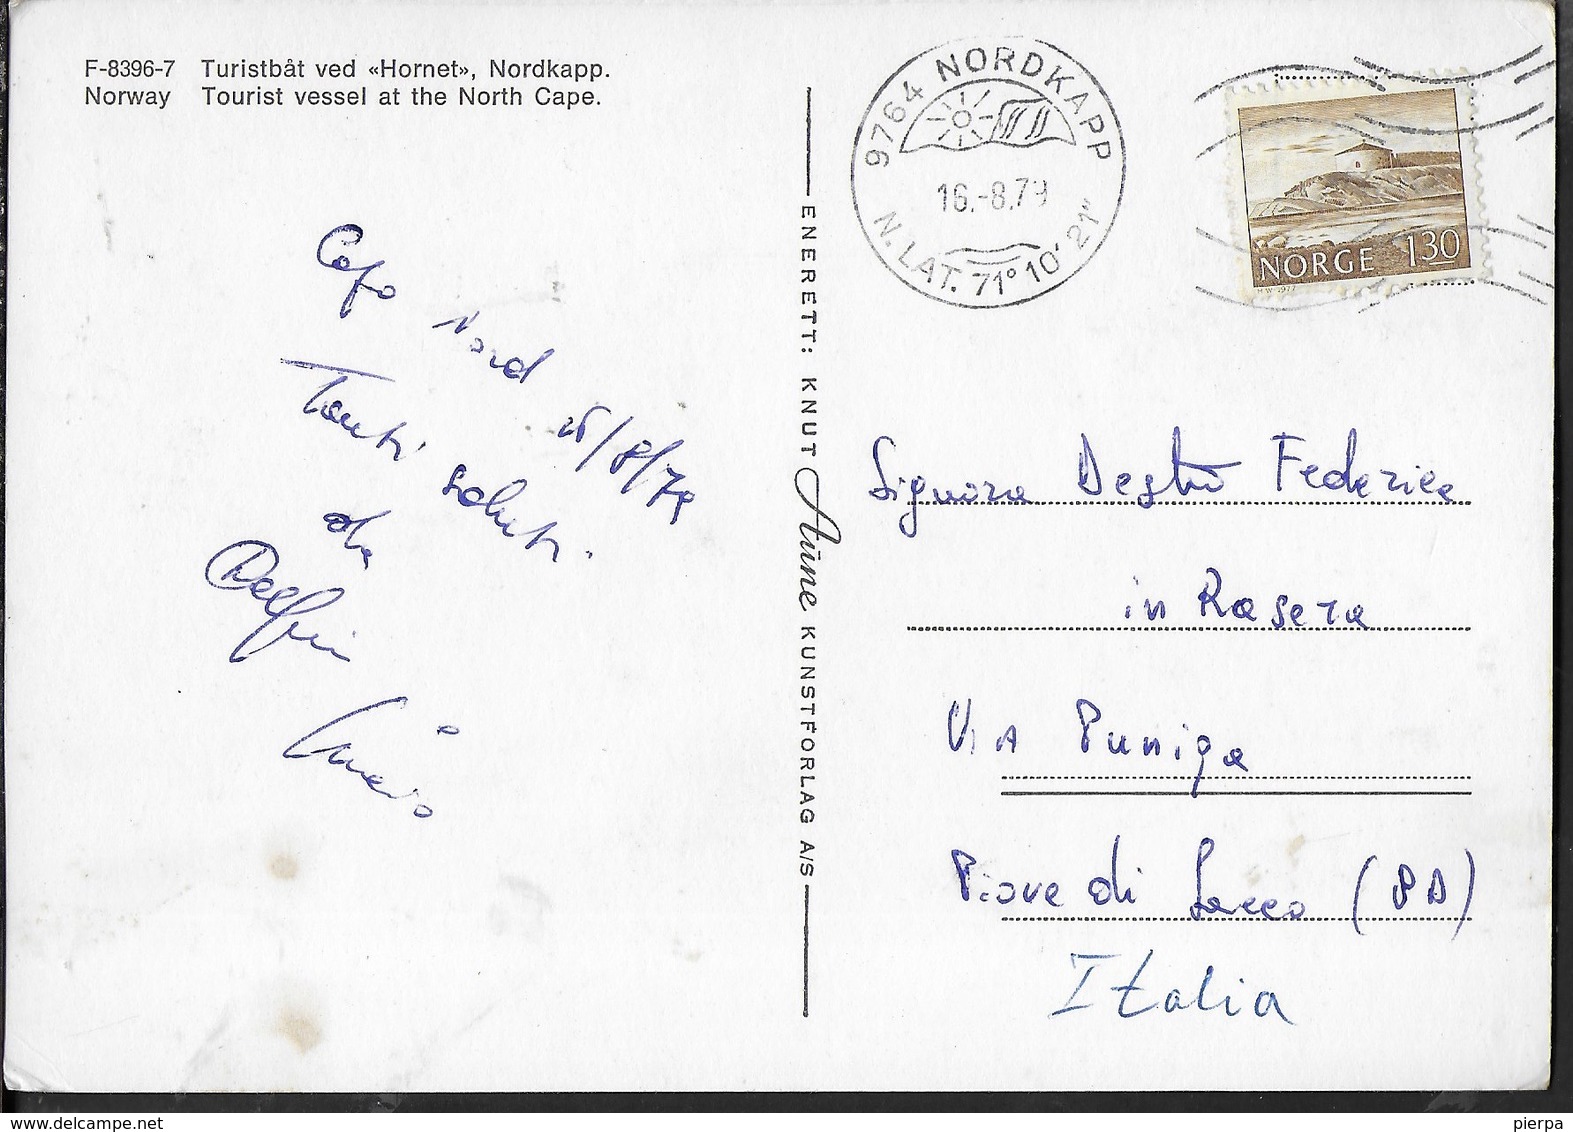 F-8396-7 Turistbåt ved «Hornet», Nordkapp.
Norway Tourist vessel at the North Cape.
9764 NORDKAPP
16.-8.79
N. LAT. 71° 10' 21"
NORGE 130
H.W. 1977
ENERETT: KNUT Aune KUNSTFORLAG A/S
Capo Nord 15/8/79
Tanti saluti
da
Delfin
Signora Destro Federica
in Rasera
Via Puniga
Piove di Sacco (PD)
Italia
pierpa
www.delcampe.net